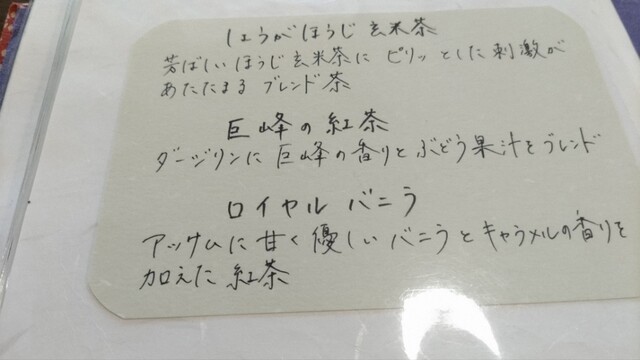 しょうがほうじ玄米茶
芳ばしいほうじ玄米茶に ピリッとした刺激が
あたたまる ブレンド茶
巨峰の紅茶
ダージリンに 巨峰の香りと ぶどう果汁をブレンド
ロイヤル バニラ
アッサムに 甘く優しい バニラと キャラメルの香りを
加えた 紅茶